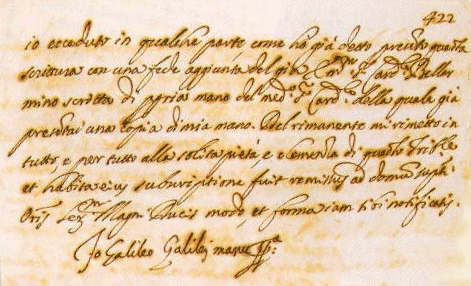 422
io ecceduto in qualche parte come ho già detto presento questa
scrittura con una fede aggiunta del già Emin.mo S.r Card.le Bellar
mino scritta di propria mano del med.mo S.r Card.le della quale già
presentai una copia di mia mano. Del rimanente mi rimetto in
tutto, e per tutto alla solita pietà e clemenza di questo Trib.le
et habita eius subscriptione fuit remissus ad domum supti
Oris Ser.mi Magni Ducis modo, et forma iam sibi notificatis.
Io Galileo Galilei manu pp.a